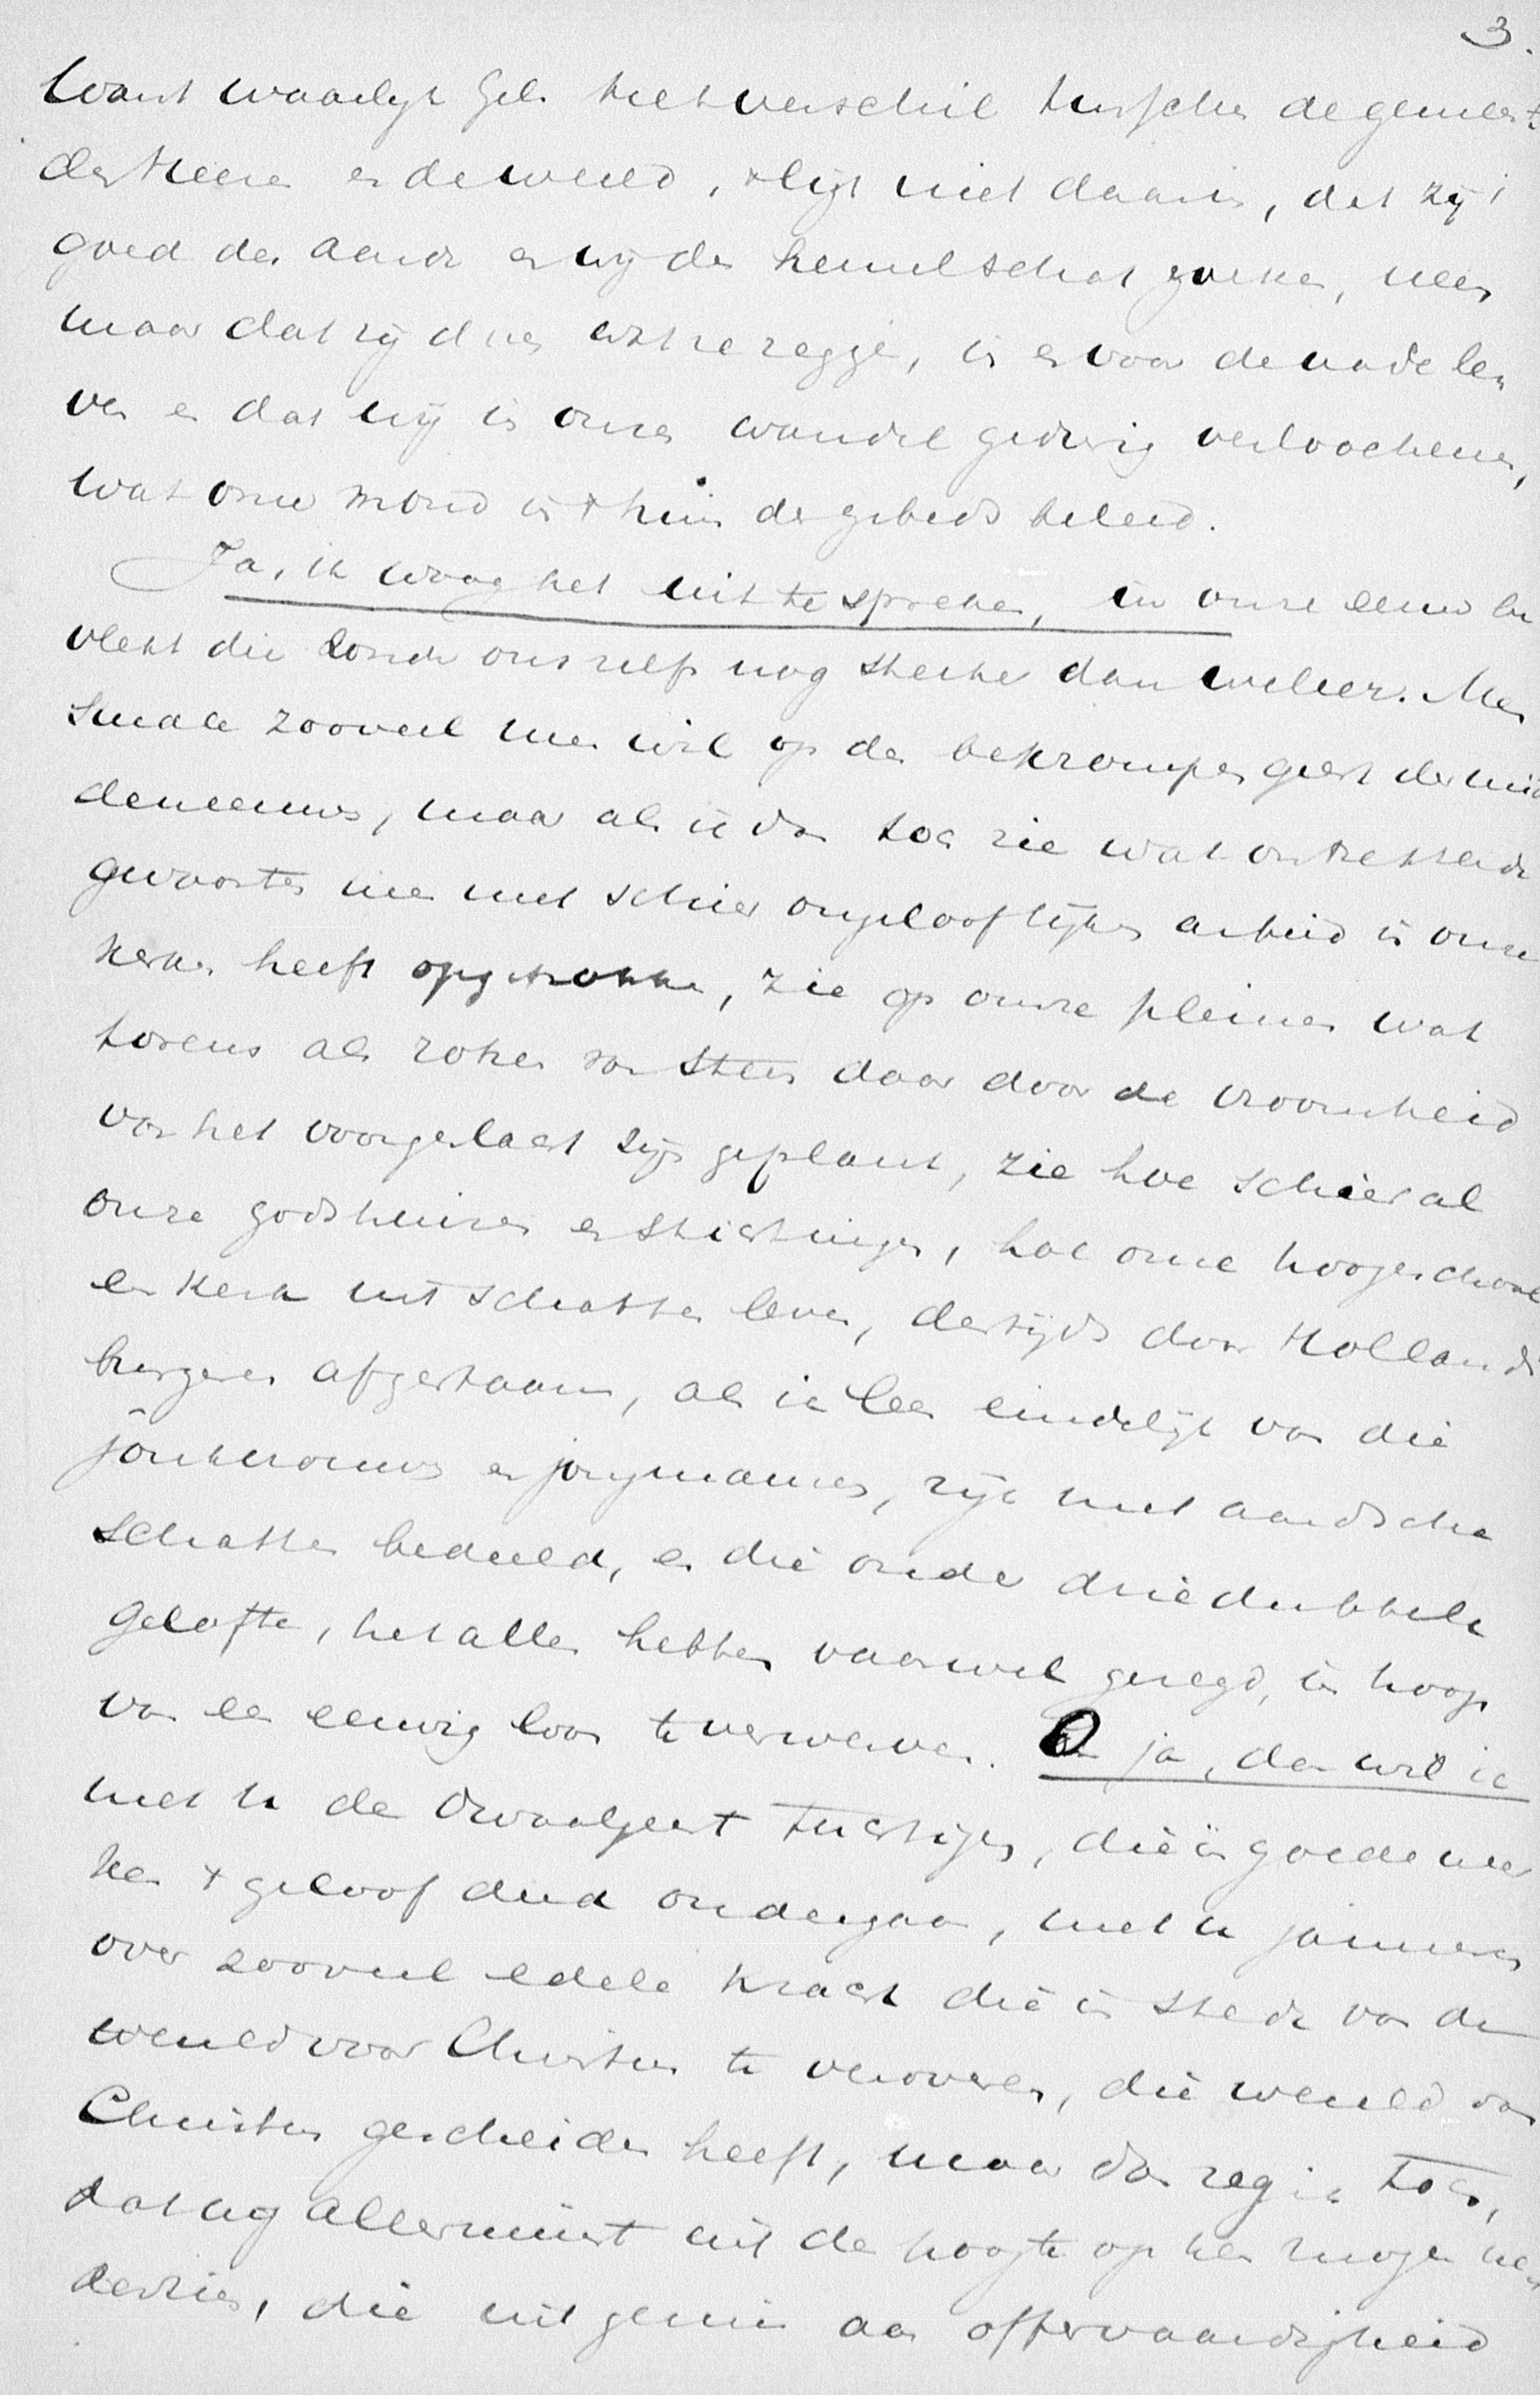 3.
Want waarlijk Gel. het verschil tusschen de gemeent.
des Heeren en de wereld, + ligt niet daarin, dat zij 't
goed der aarde en wij den hemelschat zoeken, neen
maar dat zij dien ontzeggen, en er voor de aarde le
ven en dat wij in onzen wandel gedurig verloochenen,
wat onze mond in + huis des gebeds beleed.
Ja, ik waag het uit te spreken, in onze eeuw be
vlekt die zonde ons zelfs nog sterker dan weleer. Men
smale zooveel men wil op den bekrompen geest der mid
deneeuws, maar als ik dan toch zie wat ontzettende
gevaarten men met schier ongelooflijken arbeid in onze
kerken heeft opgetrokken, zie op onze pleinen wat
torens als rotsen van steen daar door de vroomheid
van het voorgeslacht zijn geplant, zie hoe schier al
onze godshuizen en stichtingen, hoe onze hoogeschool
en kerk uit schatten leven, destijds door Hollands
burgeren afgestaan, als ik lees eindelijk van die
jonkvrouws en jongmannen, rijk met aardsche
schatten bedeeld, en die onder driedubbele
gelofte, het alles hebben vaarwel gezegd, in hoop
van een eeuwig loon te verwerven. O ja, dan wil ik
met u de dwaalgeest tuchtigen, die in goede wer
ken + geloof deed ondergaan, met u jammeren
over zooveel edele kracht die in stede van de
wereld voor Christus te veroveren, die wereld van
Christus gescheiden heeft, maar dan zeg ik toch,
dat wij allerminst uit de hoogte op hen mogen ne
derzien, die uit gemis aan offervaardigheid